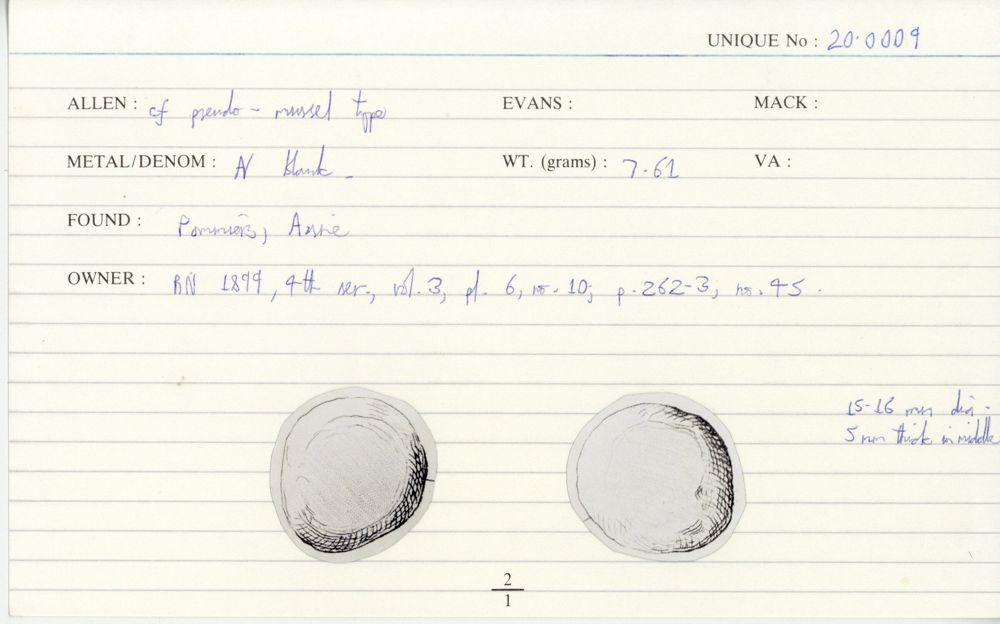 UNIQUE No : 20.0009
ALLEN : cf pseudo - mussel type EVANS : MACK :
METAL/DENOM : N blank - WT. (grams) : 7.61 VA :
FOUND : Pommiers, Aisne
OWNER : RN 1899, 4th ser., vol. 3, pl. 6, no. 10; p. 262-3; no. 45.
15-16 mm dia.
5 mm thick in middle
2
1